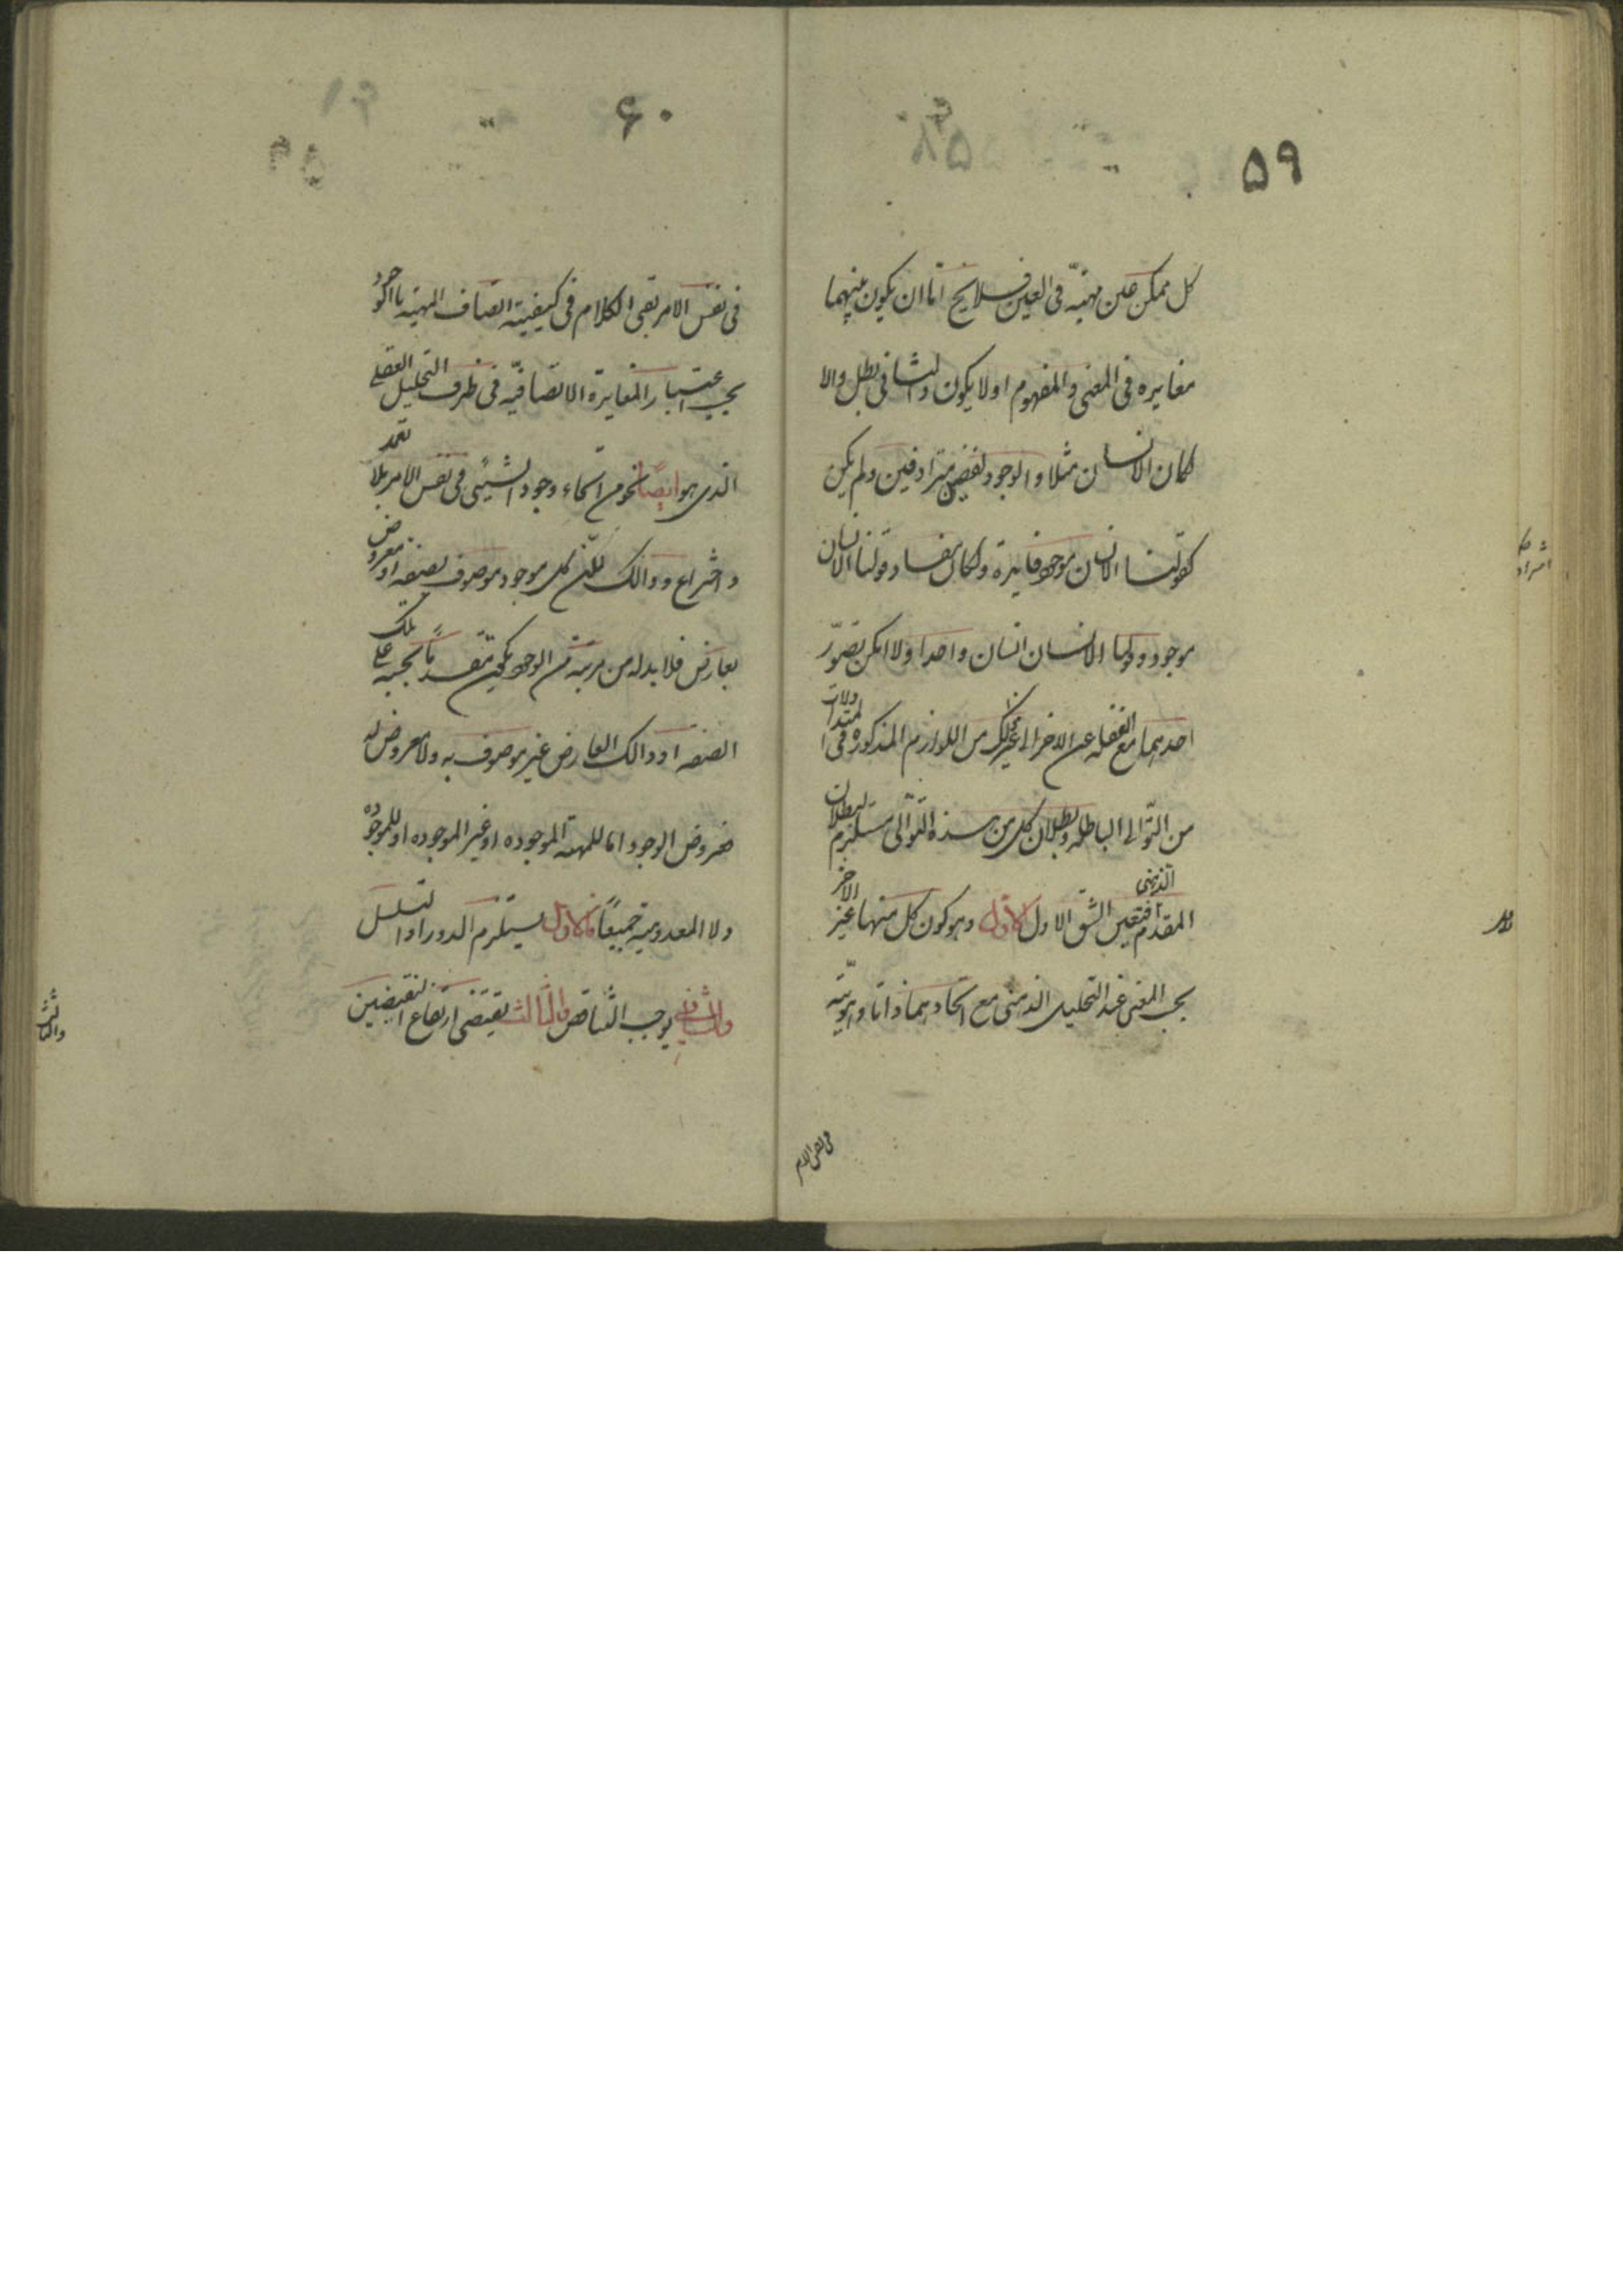 ٥٩
كل ممكن عين مهيته فى العين فلا يخ اما ان يكون بينهما
مغايره فى المعنى والمفهوم او لا يكون والثانى بطل والا
لكان الانسان مثلا والوجود لفظين مترادفين ولم يكن
كقولنا الانسان موجود فايدة ولكان مفاد قولنا الانسان
موجود وقولنا الانسان انسان واحدا ولا امكن تصوّر
احدهما مع الغفله عن الاخر الى غير ذلك من اللوازم المذكوره فى المتداولات
من التوالى الباطله وبطلان كل من هذه التوالى مستلزم لبطلان
المقدم فتعين الشق الاول وهو كون كل منهما غير الاخر
بحسب المعنى عند التحليل الذهنى مع اتحادهما ذاتا وهوية
فى نفس الامر
٦٠
فى نفس الامر بقى الكلام فى كيفية اتصاف المهية بالوجود
بحسب اعتبار المغايرة الاتصافيّه فى ظرف التحليل العقلى
الذى هو ايضا نحو من انحاء وجود الشيئى فى نفس الامر بلا تعمل
واختراع وذالك لان كل موجود موصوف بصفه او معروض
بعارض فلا بد له من مرتبه من الوجود يكون متقدما بحسبه على تلك
الصفه او ذالك العارض غير موصوف به ولا معروض له
فعروض الوجود اما للمهية الموجوده او غير الموجوده او لا الموجوده
ولا المعدومية جميعاً فالاول يستلزم الدور او التسلسل
والثانى يوجب التناقض والثالث يقتضى ارتفاع النقيضين